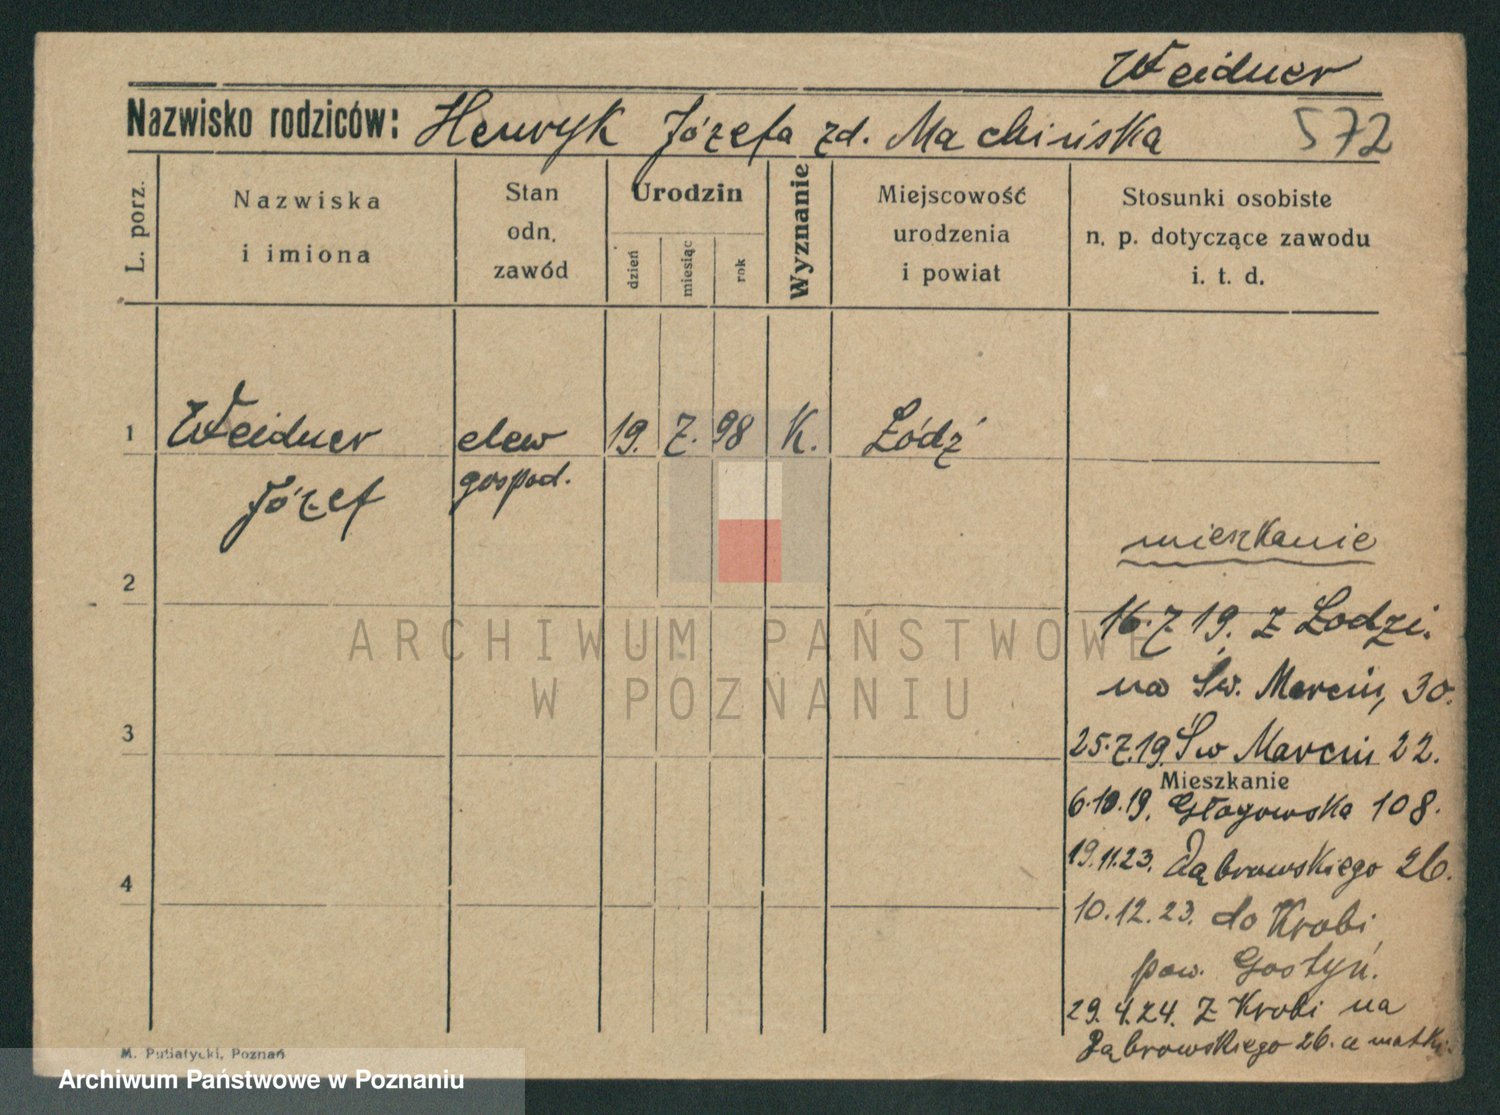 Weidner
Nazwisko rodziców: Henryk Józefa zd. Machińska
572
L. porz.
Nazwiska
i imiona
Stan
odn.
zawód
Urodzin
dzień
miesiąc
rok
Wyznanie
Miejscowość
urodzenia
i powiat
Stosunki osobiste
n. p. dotyczące zawodu
i. t. d.
1 Weidner elew 19. 7. 98 K. Łódź
Józef gospod.
mieszkanie
2
16.7.19. z Lodzi.
na Św. Marcin, 30.
3
25.7.19. Św Marcin 22.
Mieszkanie
6.10.19. Głogowska 108.
19.11.23. Dąbrowskiego 26.
4
10.12.23. do Krobi,
pow. Gostyń.
29.4.24. Z Krobi na
Dąbrowskiego 26. u matki.
M. Putiatycki, Poznań
ARCHIWUM PAŃSTWOWE
W POZNANIU
Archiwum Państwowe w Poznaniu